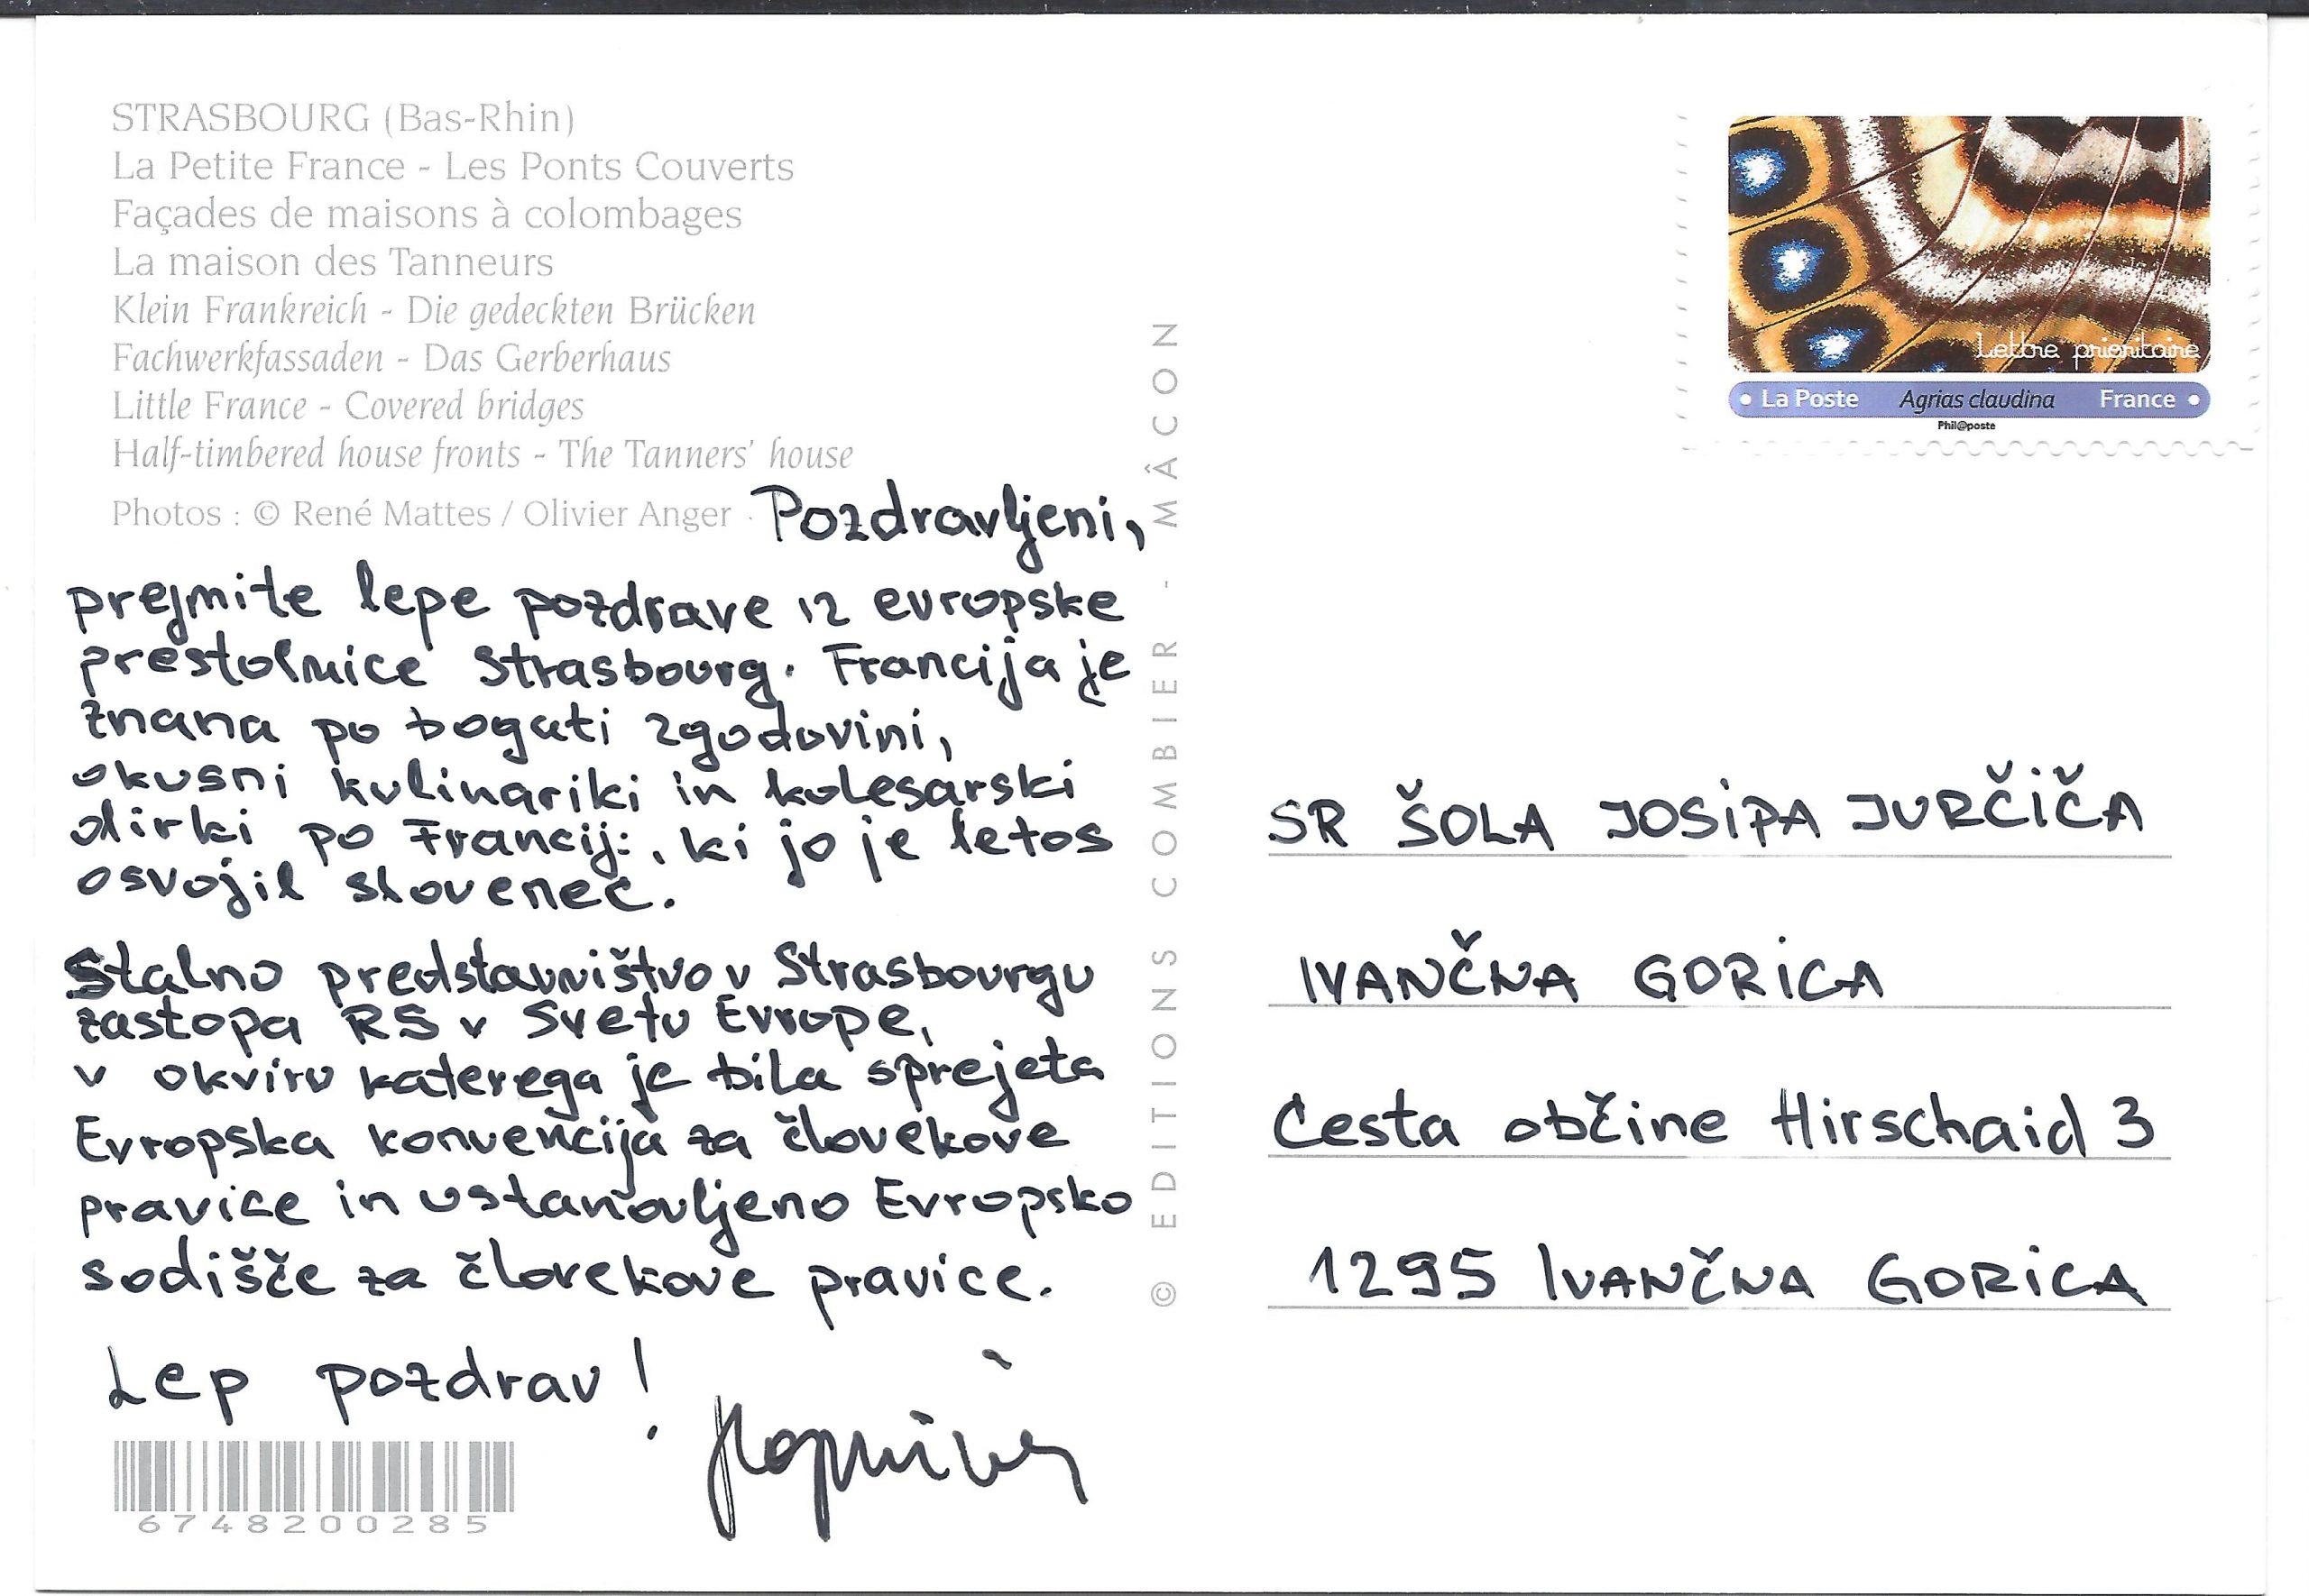 STRASBOURG (Bas-Rhin)
La Petite France - Les Ponts Couverts
Façades de maisons à colombages
La maison des Tanneurs
Klein Frankreich - Die gedeckten Brücken
Fachwerkfassaden - Das Gerberhaus
Little France - Covered bridges
Half-timbered house fronts - The Tanners' house
Photos : © René Mattes / Olivier Anger
Pozdravljeni,
prejmite lepe pozdrave iz evropske
prestolnice Strasbourg. Francija je
znana po bogati zgodovini,
okusni kulinariki in kolesarski
dirki po Franciji, ki jo je letos
osvojil slovenec.
Stalno predstavništvo v Strasbourgu
zastopa RS v Svetu Evrope,
v okviru katerega je bila sprejeta
Evropska konvencija za človekove
pravice in ustanovljeno Evropsko
sodišče za človekove pravice.
Lep pozdrav!
6748200285
© EDITIONS COMBIER - MÂCON
Lettre prioritaire
La Poste Agrias claudina France
Phil@poste
SR ŠOLA JOSIPA JURČIČA
IVANČNA GORICA
Cesta občine Hirschaid 3
1295 IVANČNA GORICA